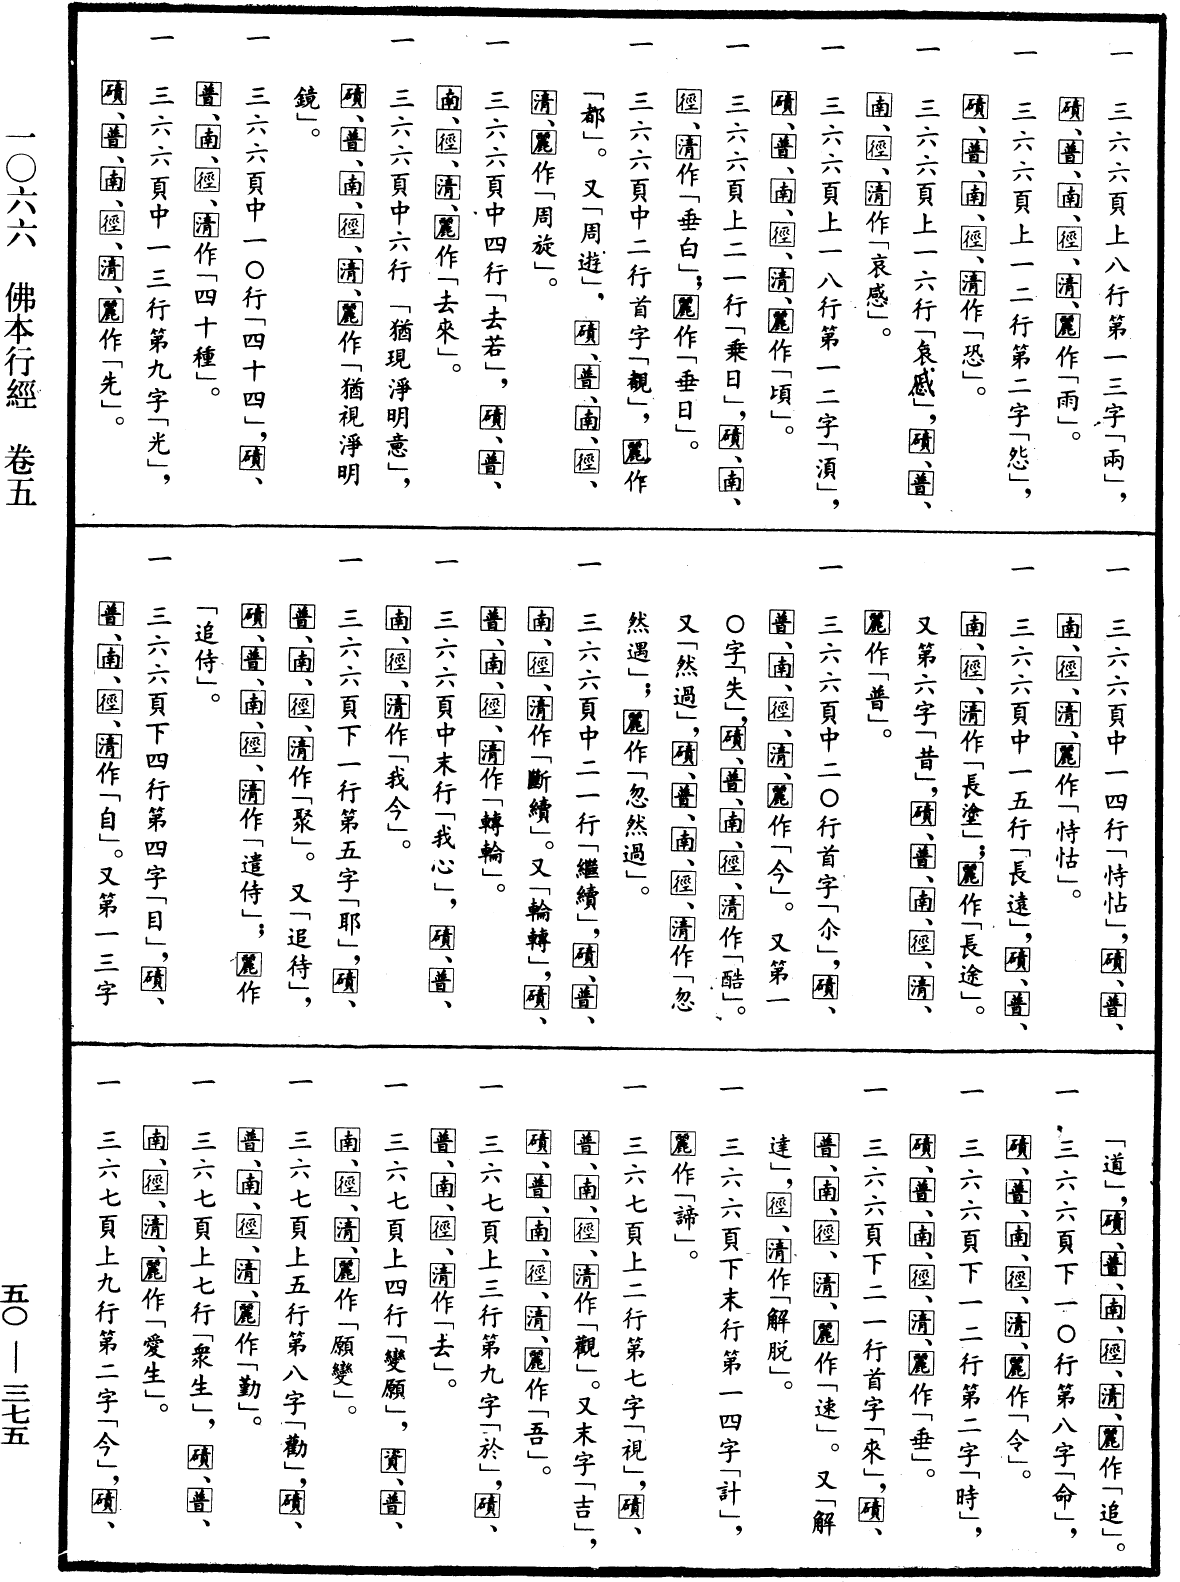 一　三六六頁上八行第一三字「兩」，
磧、普、南、徑、清、麗作「雨」。
一　三六六頁上一二行第二字「怨」，
磧、普、南、徑、清作「恐」。
一　三六六頁上一六行「哀慼」，磧、普、
南、徑、清作「哀感」。
一　三六六頁上一八行第一二字「湏」，
磧、普、南、徑、清、麗作「頃」。
一　三六六頁上二一行「乗日」，磧、南、
徑、清作「垂白」；麗作「垂日」。
一　三六六頁中二行首字「覩」，麗作
「都」。又「周遊」，磧、普、南、徑、
清、麗作「周旋」。
一　三六六頁中四行「去若」，磧、普、
南、徑、清、麗作「去來」。
一　三六六頁中六行「猶現淨明意」，
磧、普、南、徑、清、麗作「猶視淨明
鏡」。
一　三六六頁中一〇行「四十四」，磧、
普、南、徑、清作「四十種」。
一　三六六頁中一三行第九字「光」，
磧、普、南、徑、清、麗作「先」。
一　三六六頁中一四行「恃怗」，磧、普、
南、徑、清、麗作「恃怙」。
一　三六六頁中一五行「長遠」，磧、普、
南、徑、清作「長塗」；麗作「長途」。
又第六字「昔」，磧、普、南、徑、清、
麗作「普」。
一　三六六頁中二〇行首字「尒」，磧、
普、南、徑、清、麗作「今」。又第一
〇字「失」，磧、普、南、徑、清作「酷」。
又「然過」，磧、普、南、徑、清作「忽
然遇」；麗作「忽然過」。
一　三六六頁中二一行「繼續」，磧、普、
南、徑、清作「斷續」。又「輪轉」，磧、
普、南、徑、清作「轉輪」。
一　三六六頁中末行「我心」，磧、普、
南、徑、清作「我今」。
一　三六六頁下一行第五字「耶」，磧、
普、南、徑、清作「聚」。又「追待」，
磧、普、南、徑、清作「遣侍」；麗作
「追侍」。
一　三六六頁下四行第四字「目」，磧、
普、南、徑、清作「自」。又第一三字
「道」，磧、普、南、徑、清、麗作「追」。
一　三六六頁下一〇行第八字「命」，
磧、普、南、徑、清、麗作「令」。
一　三六六頁下一二行第二字「時」，
磧、普、南、徑、清、麗作「垂」。
一　三六六頁下二一行首字「來」，磧、
普、南、徑、清、麗作「速」。又「解
達」，徑、清作「解脱」。
一　三六六頁下末行第一四字「計」，
麗作「諦」。
一　三六七頁上二行第七字「視」，磧、
普、南、徑、清作「觀」。又末字「吉」，
磧、普、南、徑、清、麗作「吾」。
一　三六七頁上三行第九字「於」，磧、
普、南、徑、清作「去」。
一　三六七頁上四行「變願」，資、普、
南、徑、清、麗作「願變」。
一　三六七頁上五行第八字「勸」，磧、
普、南、徑、清、麗作「勤」。
一　三六七頁上七行「衆生」，磧、普、
南、徑、清、麗作「愛生」。
一　三六七頁上九行第二字「今」，磧、
一〇六六　佛本行經　卷五
五〇—三七五